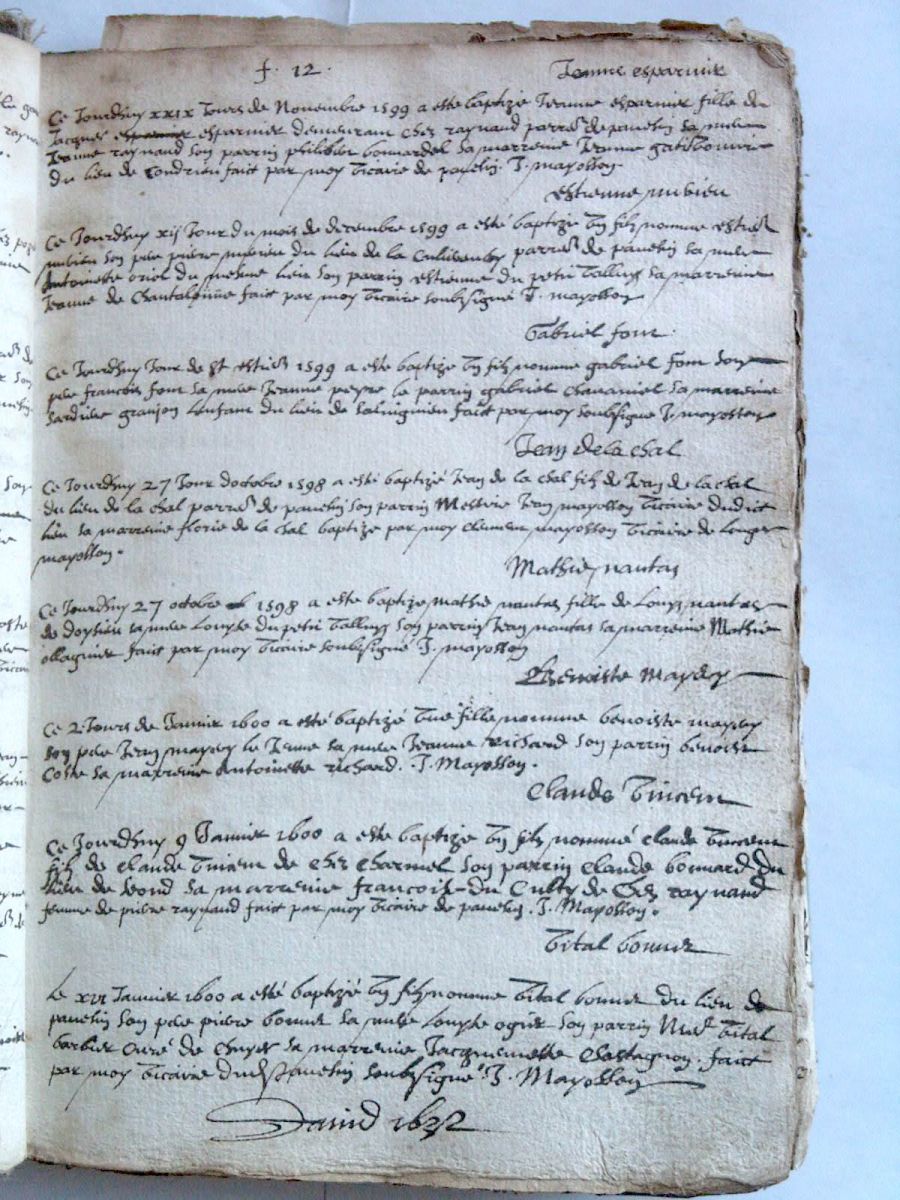 f. 12.
Jeanne esparnier
Ce Jourdhuy xxix Jours de Novembre 1599 a esté baptizé Jeanne esparnier fille de
Jacques esparnier demeurant chez raynaud parr. de pavesin sa mere
Jeanne raynaud son parrin philibert bonnardel sa marreine Jeanne
du lieu de Condrieu fait par moy vicaire de pavesin. J. mayosson
estienne mivieu
Ce Jourdhuy xij Jour du mois de decembre 1599 a esté baptizé un filz nomme estien
mivieu son pere piere mivieu du lieu de la parr. de pavesin sa mere
Antoinette oriol du mesme lieu son parrin estienne du petit sa marreine
Jeanne de fait par moy vicaire soubsigné J. mayosson
Gabriel font
Ce Jourdhuy Jour de st estien 1599 a esté baptizé un filz nomme gabriel font son
pere francois font sa mere Jeanne peyre le parrin gabriel sa marreine
granjon du lieu de fait par moy soubsigne J. mayosson
Jean de la chal
Ce Jourdhuy 27 Jour doctobre 1598 a esté baptizé Jean de la chal filz de Jean de la chal
du lieu de la chal parr. de pavesin son parrin Messire Jean mayosson vicaire dudit
lieu sa marreine florie de la chal baptize par moy clement mayosson vicaire de longes
mayosson.
Mathie nantas
Ce Jourdhuy 27 octobre 1598 a esté baptize mathie nantas fille de Louys nantas
de doysieu sa mere Loyse du petit son parrin Jean nantas sa marreine Mathie
ollagnier fait par moy vicaire soubsigné J. mayosson
Benoiste mayery
Ce 2 Jours de Janvier 1600 a esté baptizé une fille nomme benoiste mayery
son pere Jean mayery le Jeune sa mere Jeanne Richard son parrin benoist
Coste sa marreine Antoinette richard. J. Mayosson.
Claude Vincent
Ce Jourdhuy 9 Janvier 1600 a esté baptizé un filz nommé claude vincent
filz de claude vincent de chez charmel son parrin claude bonnard du
lieu de sa marreine francoise du Culty de chez raynaud
femme de piere raynaud fait par moy vicaire de pavesin. J. Mayosson.
Vital bonnet
Le Janvier 1600 a esté baptizé un filz nomme vital bonnet du lieu de
pavesin son pere piere bonnet sa mere Loyse ogier son parrin vital
barbier curé de chuyer sa marreine Jacquemette chastagnon. fait
par moy vicaire dudit pavesin soubsigné. J. Mayosson
David 1632